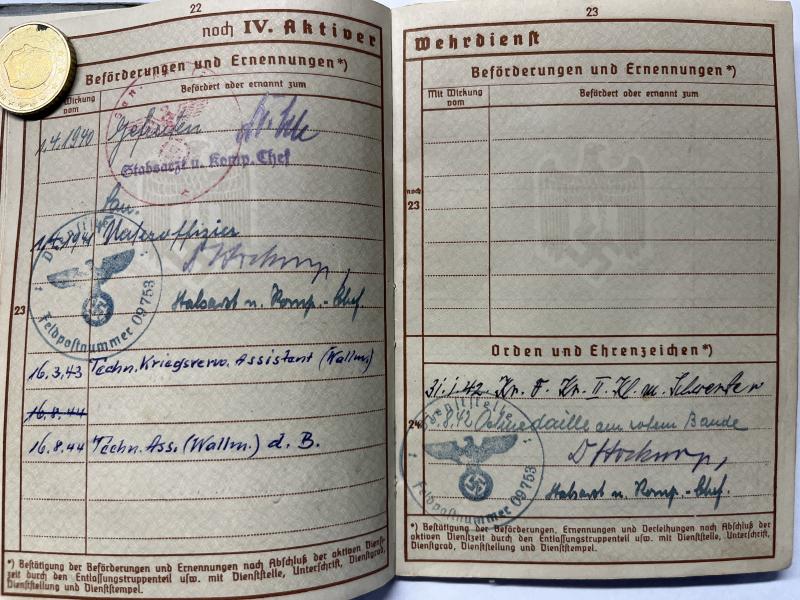 22
noch IV. Aktiver
Beförderungen und Ernennungen*)
Mit Wirkung vom
Befördert oder ernannt zum
1.4.1940 Gefreiten
Stabsarzt u. Komp. Chef
San.
Unteroffizier
Dienststelle
Feldpostnummer 09753
Stabsarzt u. Komp.-Chef.
23
16.3.43 Techn. Kriegsverw. Assistent (Wallm)
16.8.44
16.8.44 Techn. Ass. (Wallm.) d. B.
*) Bestätigung der Beförderungen und Ernennungen nach Abschluß der aktiven Dienst-
zeit durch den Entlassungstruppenteil usw. mit Dienststelle, Unterschrift, Dienstgrad,
Dienststellung und Dienststempel.
23
Wehrdienst
Beförderungen und Ernennungen*)
Mit Wirkung vom
Befördert oder ernannt zum
noch
23
Orden und Ehrenzeichen*)
31.1.42 Kr. V. Kr. II. Kl. m. Schwerter
24
8.42 Ostmedaille am rotem Bande
Dienststelle
Feldpostnummer 09753
Stabsarzt u. Komp.-Chef.
*) Bestätigung der Beförderungen, Ernennungen und Verleihungen nach Abschluß der
aktiven Dienstzeit durch den Entlassungstruppenteil usw. mit Dienststelle, Unterschrift,
Dienstgrad, Dienststellung und Dienststempel.